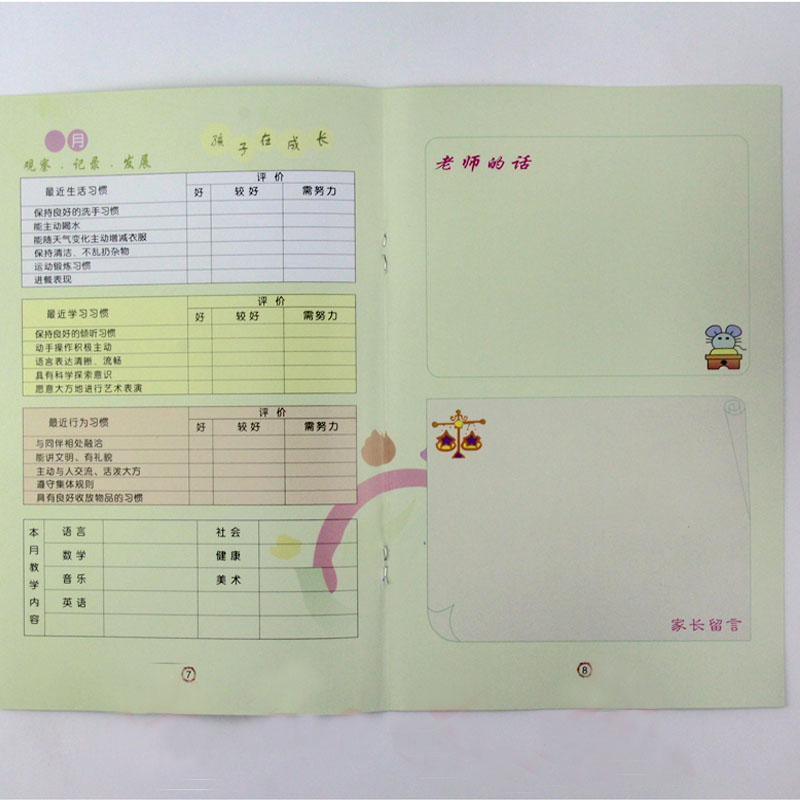 月
孩子在成长
观察.记录.发展
最近生活习惯 评价
好 较好 需努力
保持良好的洗手习惯
能主动喝水
能随天气变化主动增减衣服
保持清洁、不乱扔杂物
运动锻炼习惯
进餐表现
最近学习习惯 评价
好 较好 需努力
保持良好的倾听习惯
动手操作积极主动
语言表达清晰、流畅
具有科学探索意识
愿意大方地进行艺术表演
最近行为习惯 评价
好 较好 需努力
与同伴相处融洽
能讲文明、有礼貌
主动与人交流、活泼大方
遵守集体规则
具有良好收放物品的习惯
本月教学内容
语言 社会
数学 健康
音乐 美术
英语
7
老师的话
家长留言
8